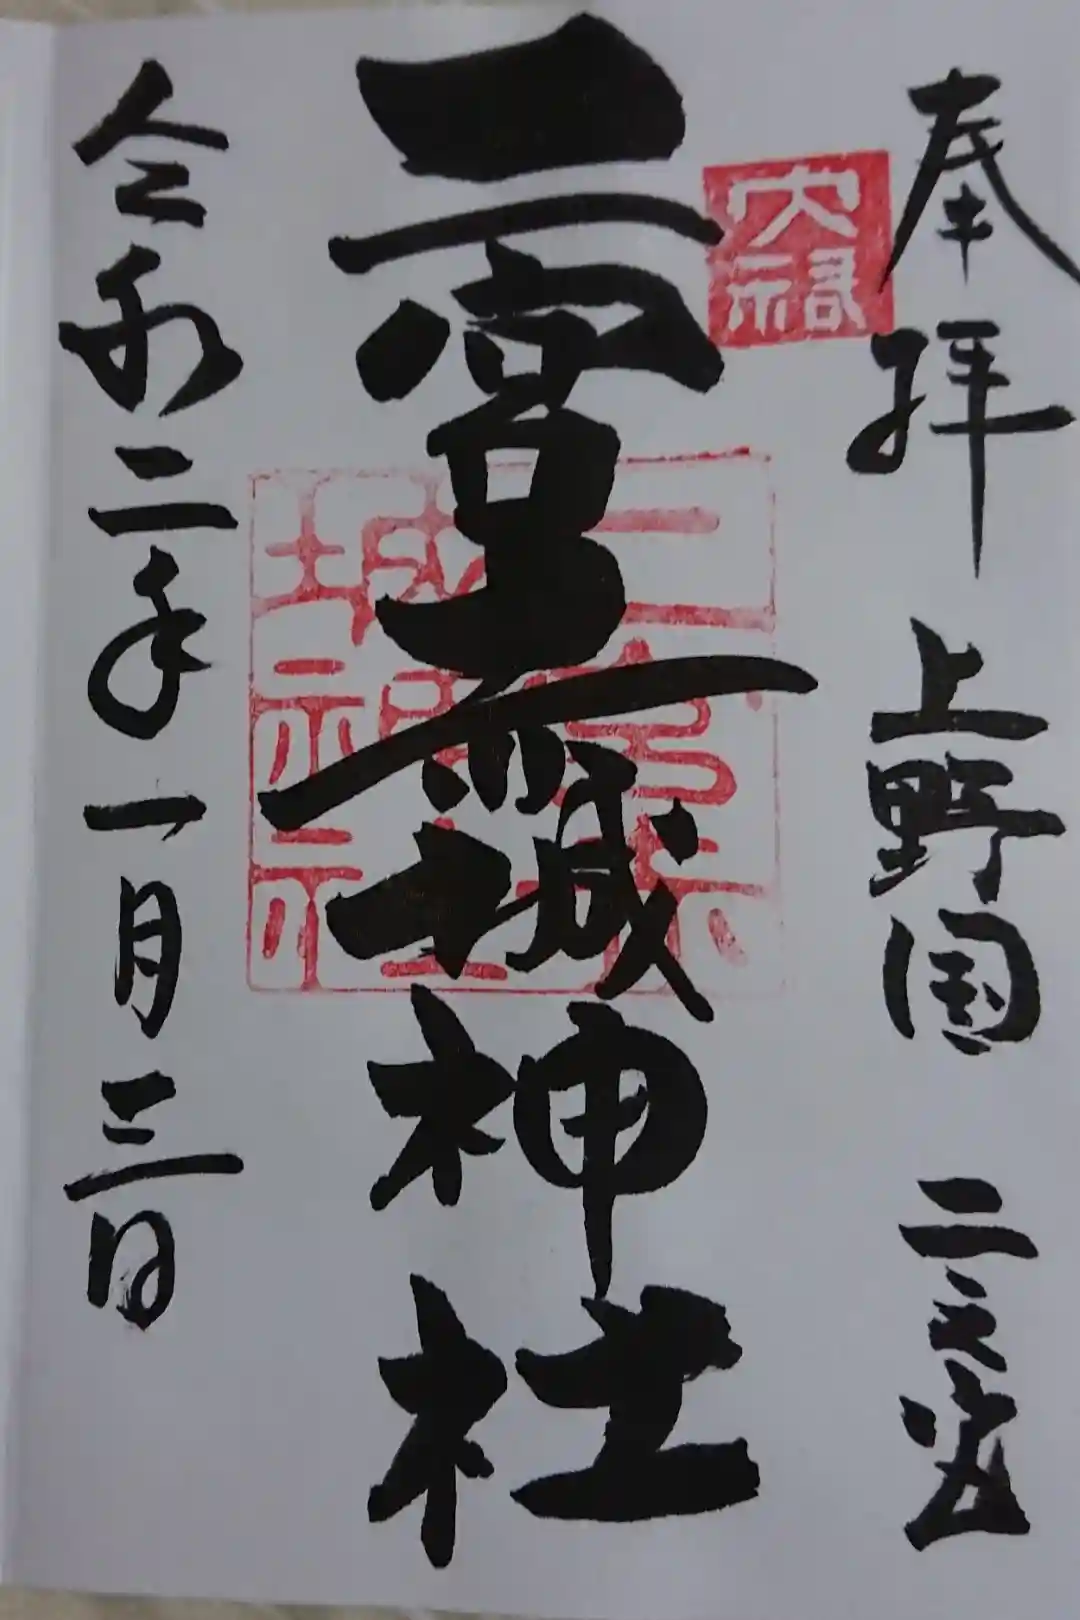 奉拝 上野国 二之宮
大福
二宮赤城神社
二宮赤城神社
令和二年一月三日